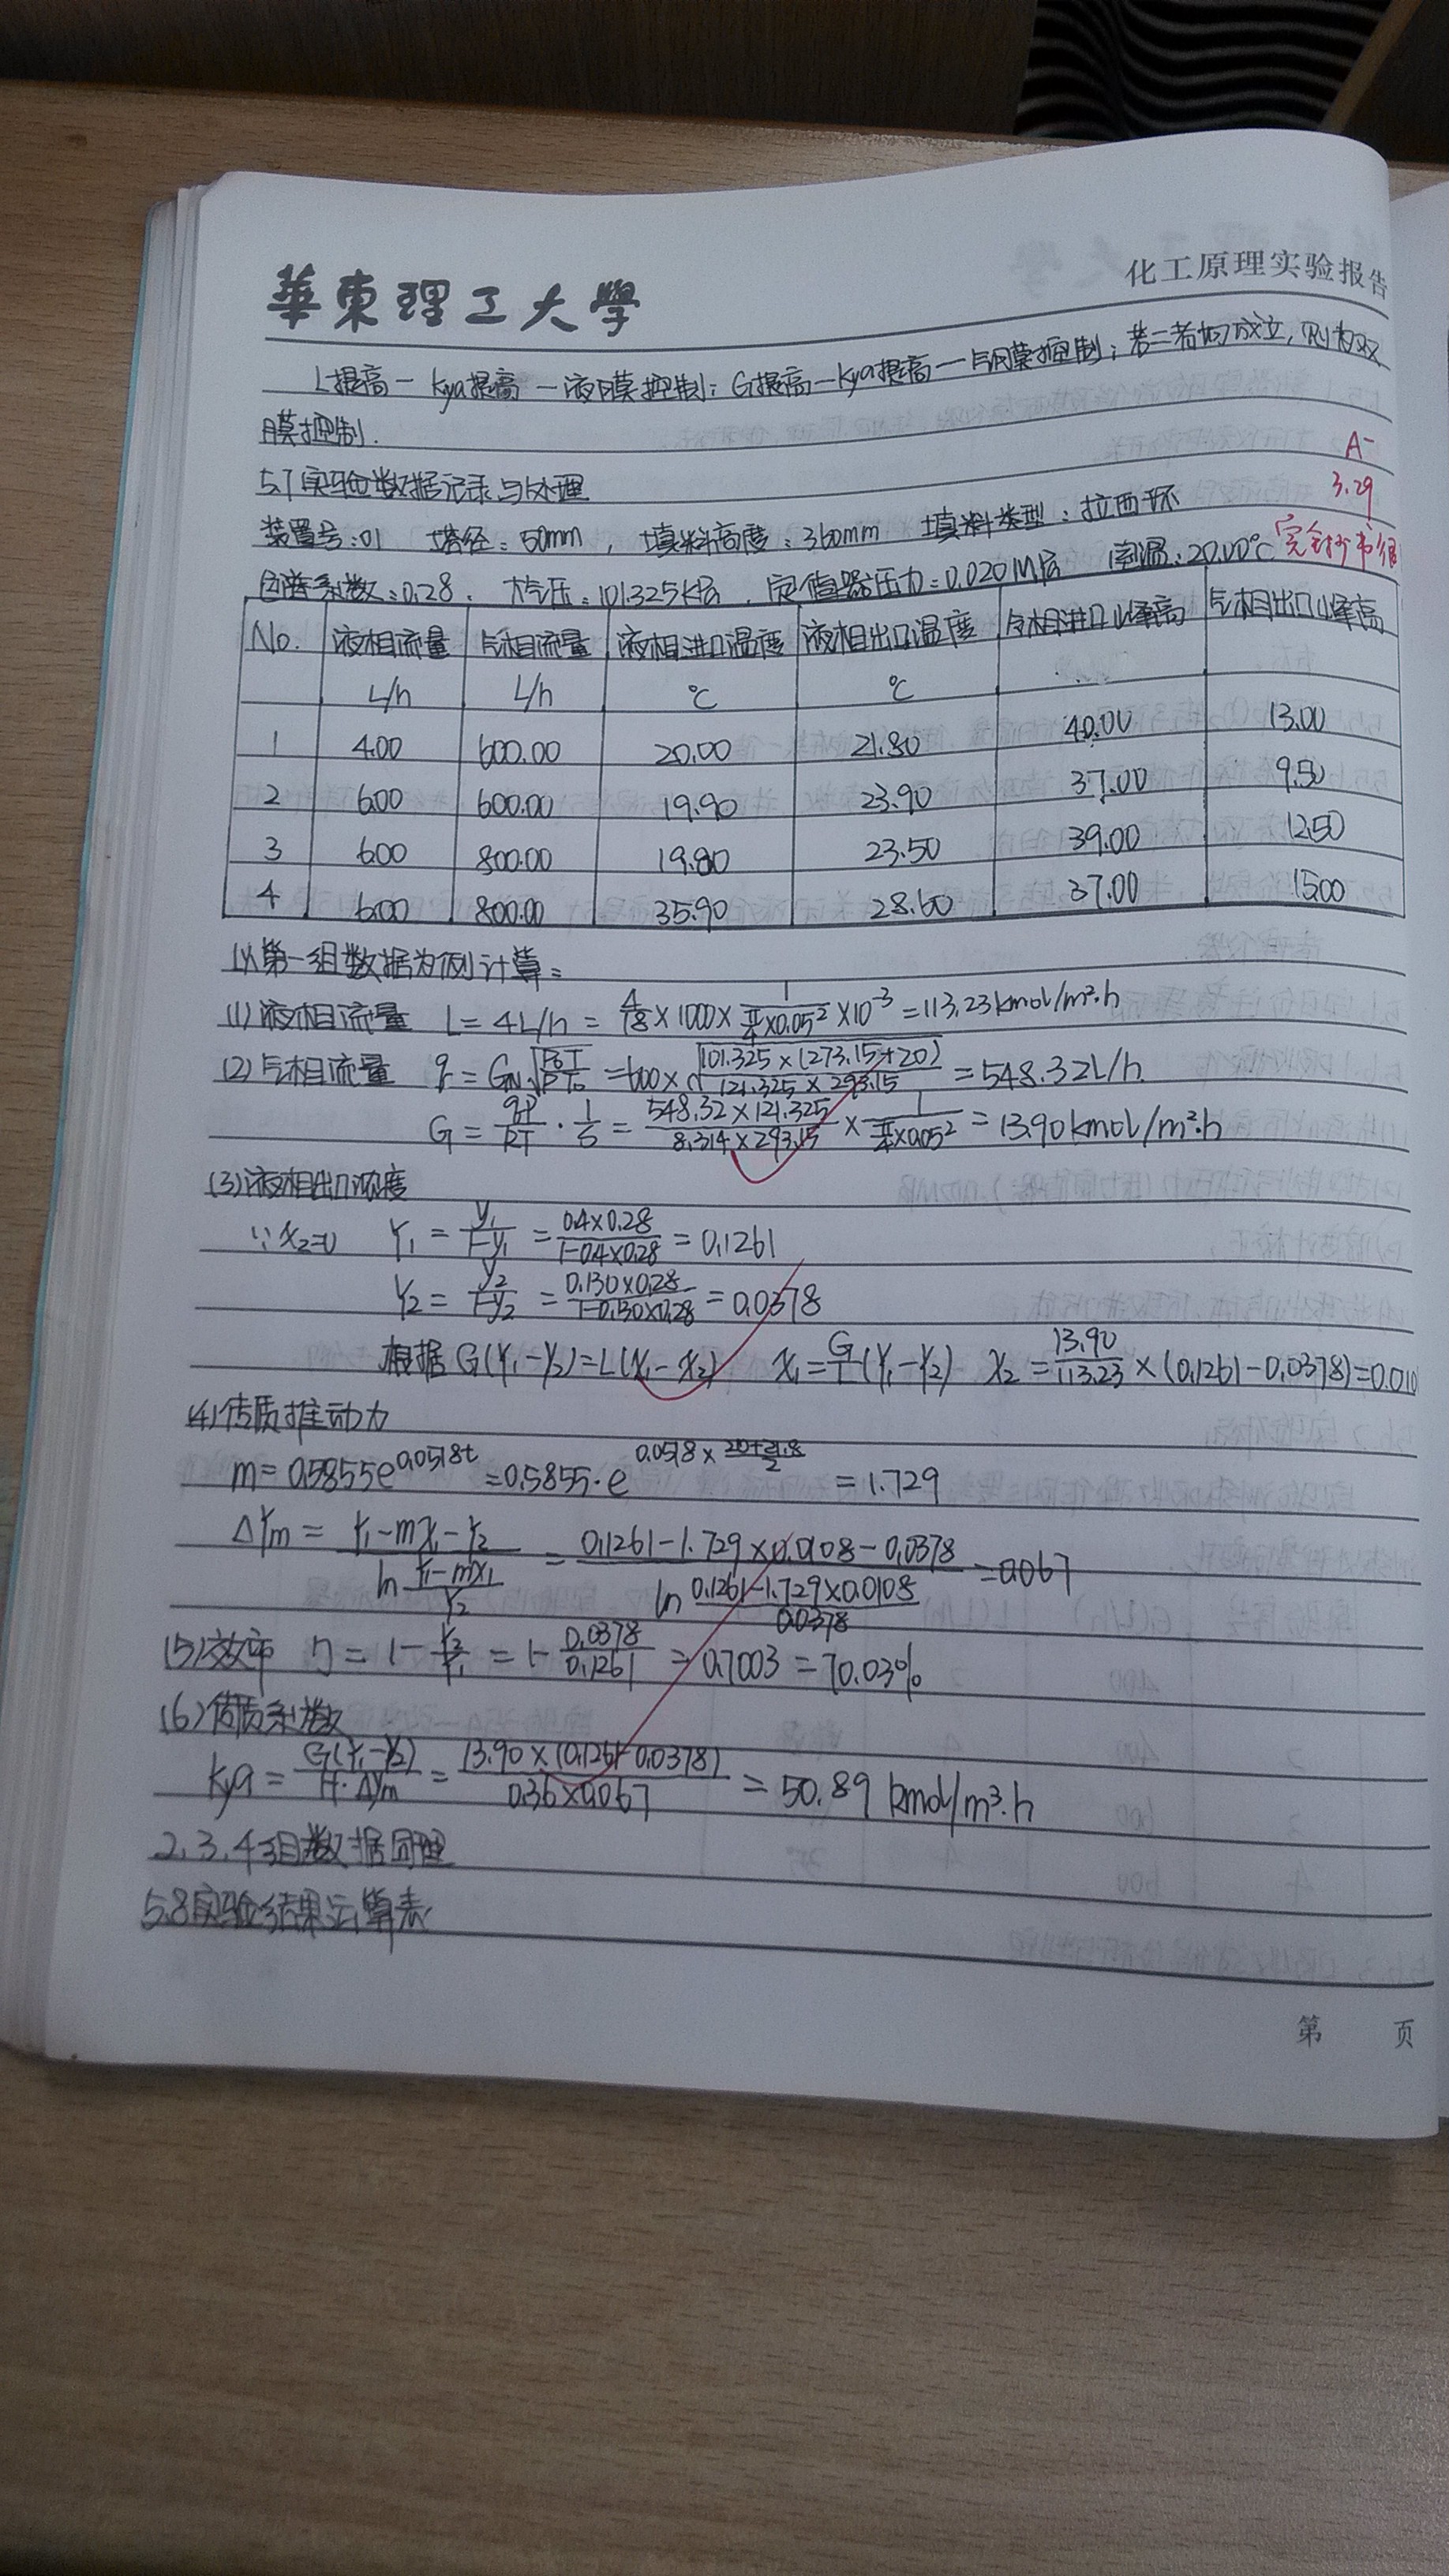 華東理工大學
化工原理实验报告
L提高一Kya提高一液膜控制；G提高一Kya提高一气膜控制；若二者均成立，则为双
膜控制.
A-
3.29
5.7实验数据记录与处理
装置号:01 塔径：50mm， 填料高度：360mm 填料类型：拉西环
色谱系数：0.28. 大气压：101.325KPa . 定值器压力=0.020MPa 室温：20.00℃
No. 液相流量 气相流量 液相进口温度 液相出口温度 气相进口峰高 气相出口峰高
L/h L/h ℃ ℃
1 4.00 600.00 20.00 21.80 40.00 13.00
2 6.00 600.00 19.90 23.90 37.00 9.50
3 6.00 800.00 19.80 23.50 39.00 12.50
4 6.00 800.00 35.90 28.60 37.00 15.00
以第一组数据为例计算：
(1)液相流量 L=4L/h=4/18×1000×1/(π/4×0.05²)×10⁻³=113.23kmol/m²·h
(2)气相流量 q=G_N√(P₀T/PT₀)=600×√(101.325×(273.15+20)/121.325×293.15)=548.32L/h.
G=qP/RT·1/S=548.32×121.325/8.314×293.15×1/(π/4×0.05²)=13.90kmol/m²·h
(3)液相出口浓度
∵x₂=0 Y₁=y₁/1-y₁=0.4×0.28/1-0.4×0.28=0.1261
Y₂=y₂/1-y₂=0.130×0.28/1-0.130×0.28=0.0378
根据G(Y₁-Y₂)=L(x₁-x₂) x₁=G/L(Y₁-Y₂) x₂=13.90/113.23×(0.1261-0.0378)=0.010
(4)传质推动力
m=0.5855e^0.0518t=0.5855·e^0.0518×20+21.8/2=1.729
ΔYm=Y₁-mx₁-Y₂/ln Y₁-mx₁/Y₂=0.1261-1.729×0.0108-0.0378/ln 0.1261-1.729×0.0108/0.0378=0.067
(5)效率 η=1-Y₂/Y₁=1-0.0378/0.1261=0.7003=70.03%
(6)传质系数
Kya=G(Y₁-Y₂)/H·ΔYm=13.90×(0.1261-0.0378)/0.36×0.067=50.89 kmol/m³·h
2.3.4组数据同理
5.8实验结果运算表
第 页